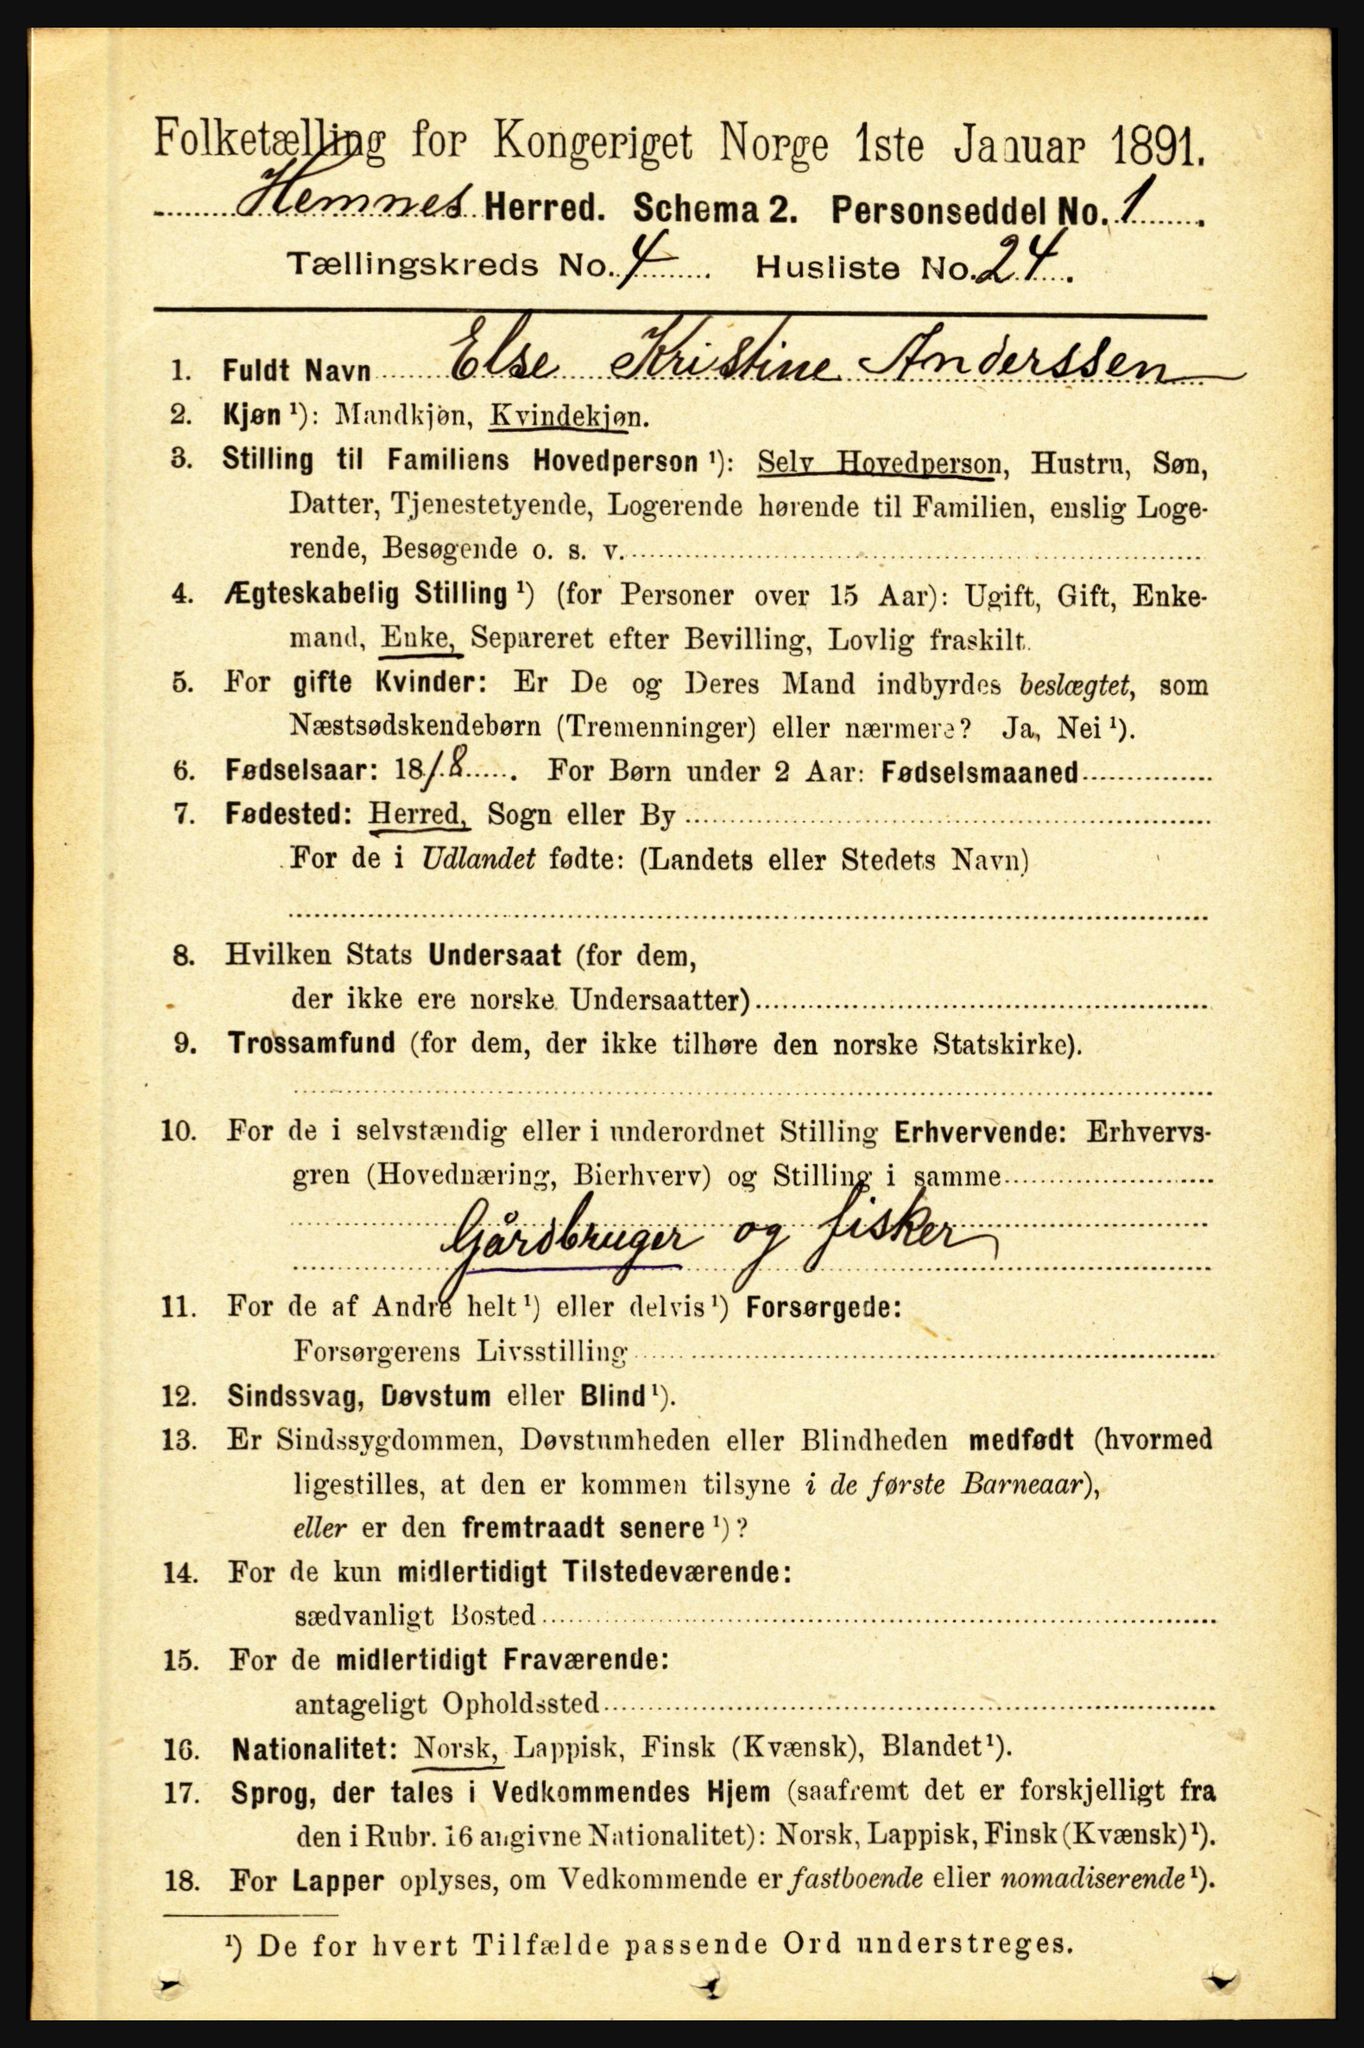 Folketælling for Kongeriget Norge 1ste Januar 1891.
Hemnes Herred. Schema 2. Personseddel No. 1
Tællingskreds No. 4 Husliste No. 24.
1. Fuldt Navn Else Kristine Anderssen
2. Kjøn ¹): Mandkjøn, Kvindekjøn.
3. Stilling til Familiens Hovedperson ¹): Selv Hovedperson, Hustru, Søn,
Datter, Tjenestetyende, Logerende hørende til Familien, enslig Loge-
rende, Besøgende o. s. v.
4. Ægteskabelig Stilling ¹) (for Personer over 15 Aar): Ugift, Gift, Enke-
mand, Enke, Separeret efter Bevilling, Lovlig fraskilt.
5. For gifte Kvinder: Er De og Deres Mand indbyrdes beslægtet, som
Næstsødskendebørn (Tremenninger) eller nærmere? Ja, Nei ¹).
6. Fødselsaar: 1818. For Børn under 2 Aar: Fødselsmaaned
7. Fødested: Herred, Sogn eller By
For de i Udlandet fødte: (Landets eller Stedets Navn)
8. Hvilken Stats Undersaat (for dem,
der ikke ere norske Undersaatter)
9. Trossamfund (for dem, der ikke tilhøre den norske Statskirke).
10. For de i selvstændig eller i underordnet Stilling Erhvervende: Erhvervs-
gren (Hovednæring, Bierhverv) og Stilling i samme
Gårdbruger og fisker
11. For de af Andre helt ¹) eller delvis ¹) Forsørgede:
Forsørgerens Livsstilling
12. Sindssvag, Døvstum eller Blind ¹).
13. Er Sindssygdommen, Døvstumheden eller Blindheden medfødt (hvormed
ligestilles, at den er kommen tilsyne i de første Barneaar),
eller er den fremtraadt senere ¹)?
14. For de kun midlertidigt Tilstedeværende:
sædvanligt Bosted
15. For de midlertidigt Fraværende:
antageligt Opholdssted
16. Nationalitet: Norsk, Lappisk, Finsk (Kvænsk), Blandet ¹).
17. Sprog, der tales i Vedkommendes Hjem (saafremt det er forskjelligt fra
den i Rubr. 16 angivne Nationalitet): Norsk, Lappisk, Finsk (Kvænsk) ¹).
18. For Lapper oplyses, om Vedkommende er fastboende eller nomadiserende ¹).
¹) De for hvert Tilfælde passende Ord understreges.